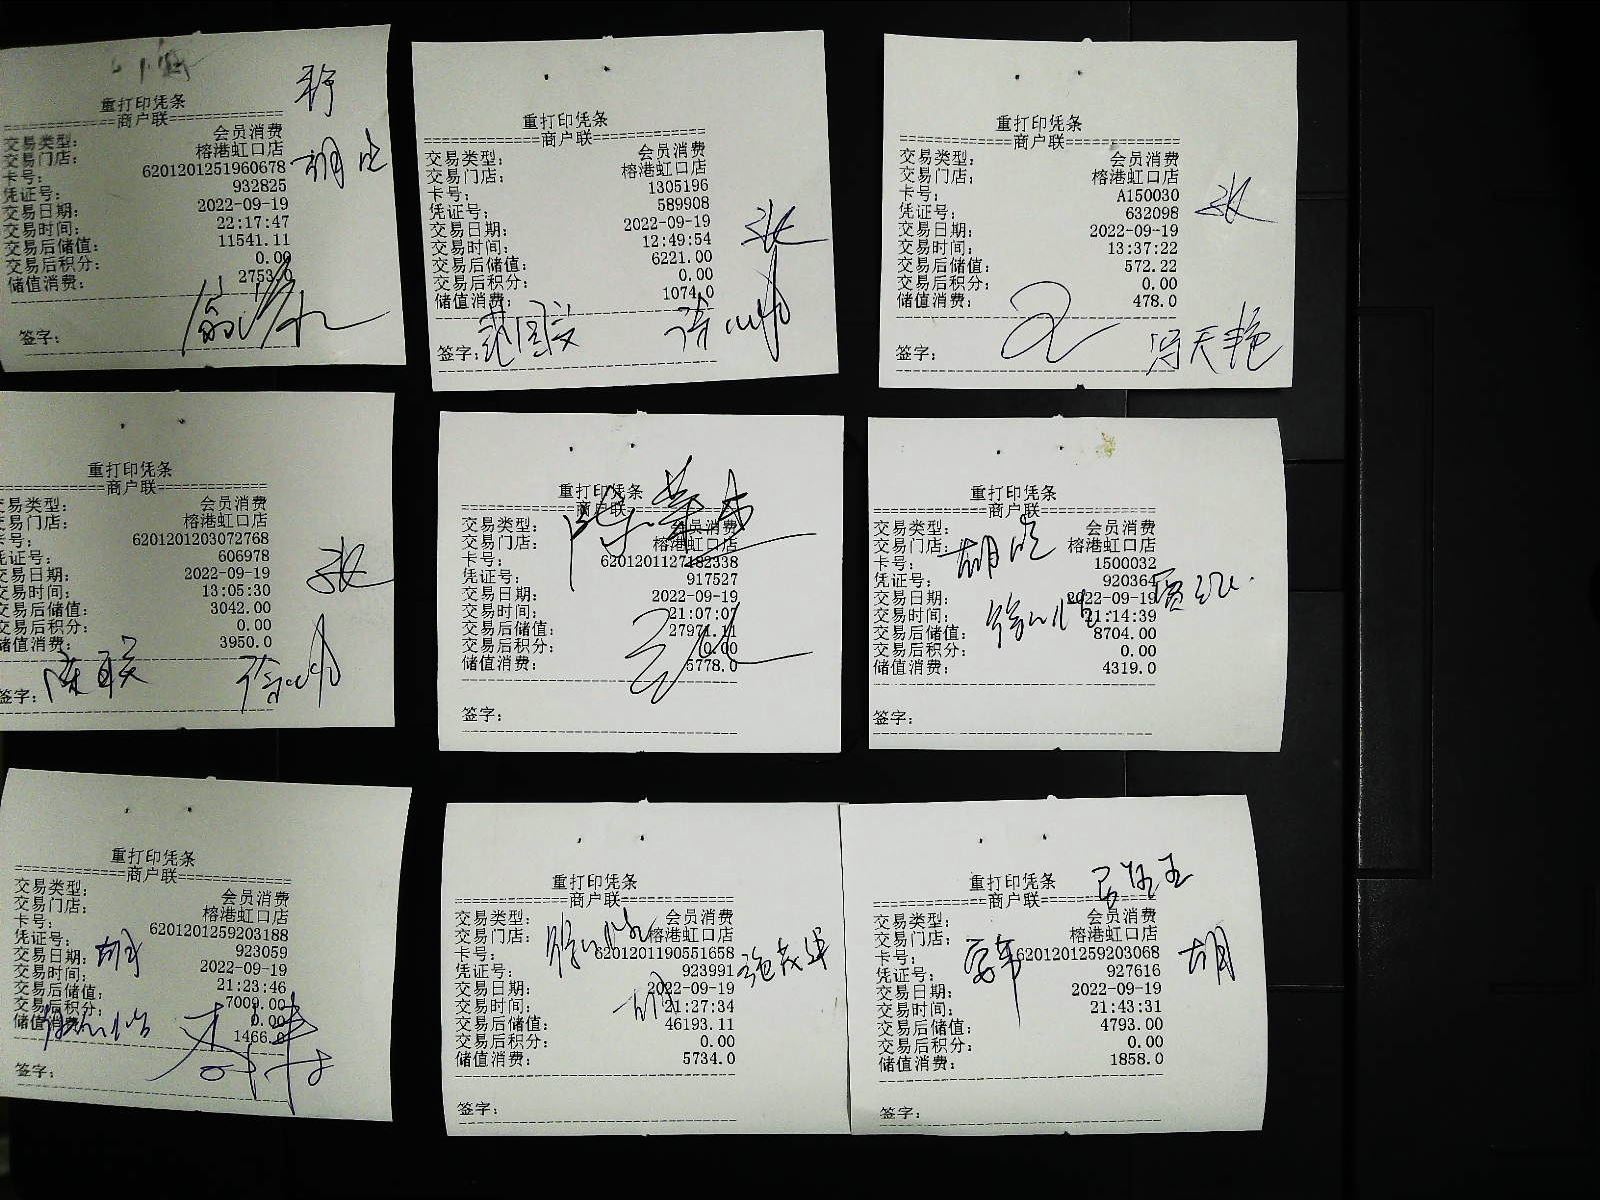 重打印凭条
==============商户联==============
交易类型: 会员消费
交易门店: 榕港虹口店
卡号: 6201201251960678
凭证号: 932825
交易日期: 2022-09-19
交易时间: 22:17:47
交易后储值: 11541.11
交易后积分: 0.00
储值消费: 2753.0
签字:
重打印凭条
==============商户联==============
交易类型: 会员消费
交易门店: 榕港虹口店
卡号: 1305196
凭证号: 589908
交易日期: 2022-09-19
交易时间: 12:49:54
交易后储值: 6221.00
交易后积分: 0.00
储值消费: 1074.0
签字:
张
重打印凭条
==============商户联==============
交易类型: 会员消费
交易门店: 榕港虹口店
卡号: A150030
凭证号: 632098
交易日期: 2022-09-19
交易时间: 13:37:22
交易后储值: 572.22
交易后积分: 0.00
储值消费: 478.0
签字: 冯天艳
张
重打印凭条
==============商户联==============
交易类型: 会员消费
交易门店: 榕港虹口店
卡号: 6201201203072768
凭证号: 606978
交易日期: 2022-09-19
交易时间: 13:05:30
交易后储值: 3042.00
交易后积分: 0.00
储值消费: 3950.0
签字: 陈联
张
重打印凭条
==============商户联==============
交易类型: 会员消费
交易门店: 榕港虹口店
卡号: 6201201127182338
凭证号: 917527
交易日期: 2022-09-19
交易时间: 21:07:07
交易后储值: 27971.11
交易后积分: 0.00
储值消费: 5778.0
签字:
重打印凭条
==============商户联==============
交易类型: 会员消费
交易门店: 榕港虹口店
卡号: 1500032
凭证号: 920364
交易日期: 2022-09-19
交易时间: 21:14:39
交易后储值: 8704.00
交易后积分: 0.00
储值消费: 4319.0
签字:
重打印凭条
==============商户联==============
交易类型: 会员消费
交易门店: 榕港虹口店
卡号: 6201201259203188
凭证号: 923059
交易日期: 2022-09-19
交易时间: 21:23:46
交易后储值: 7009.00
交易后积分: 0.00
储值消费: 1466.0
签字:
重打印凭条
==============商户联==============
交易类型: 会员消费
交易门店: 榕港虹口店
卡号: 6201201190551658
凭证号: 923991
交易日期: 2022-09-19
交易时间: 21:27:34
交易后储值: 46193.11
交易后积分: 0.00
储值消费: 5734.0
签字:
重打印凭条
==============商户联==============
交易类型: 会员消费
交易门店: 榕港虹口店
卡号: 6201201259203068
凭证号: 927616
交易日期: 2022-09-19
交易时间: 21:43:31
交易后储值: 4793.00
交易后积分: 0.00
储值消费: 1858.0
签字:
胡